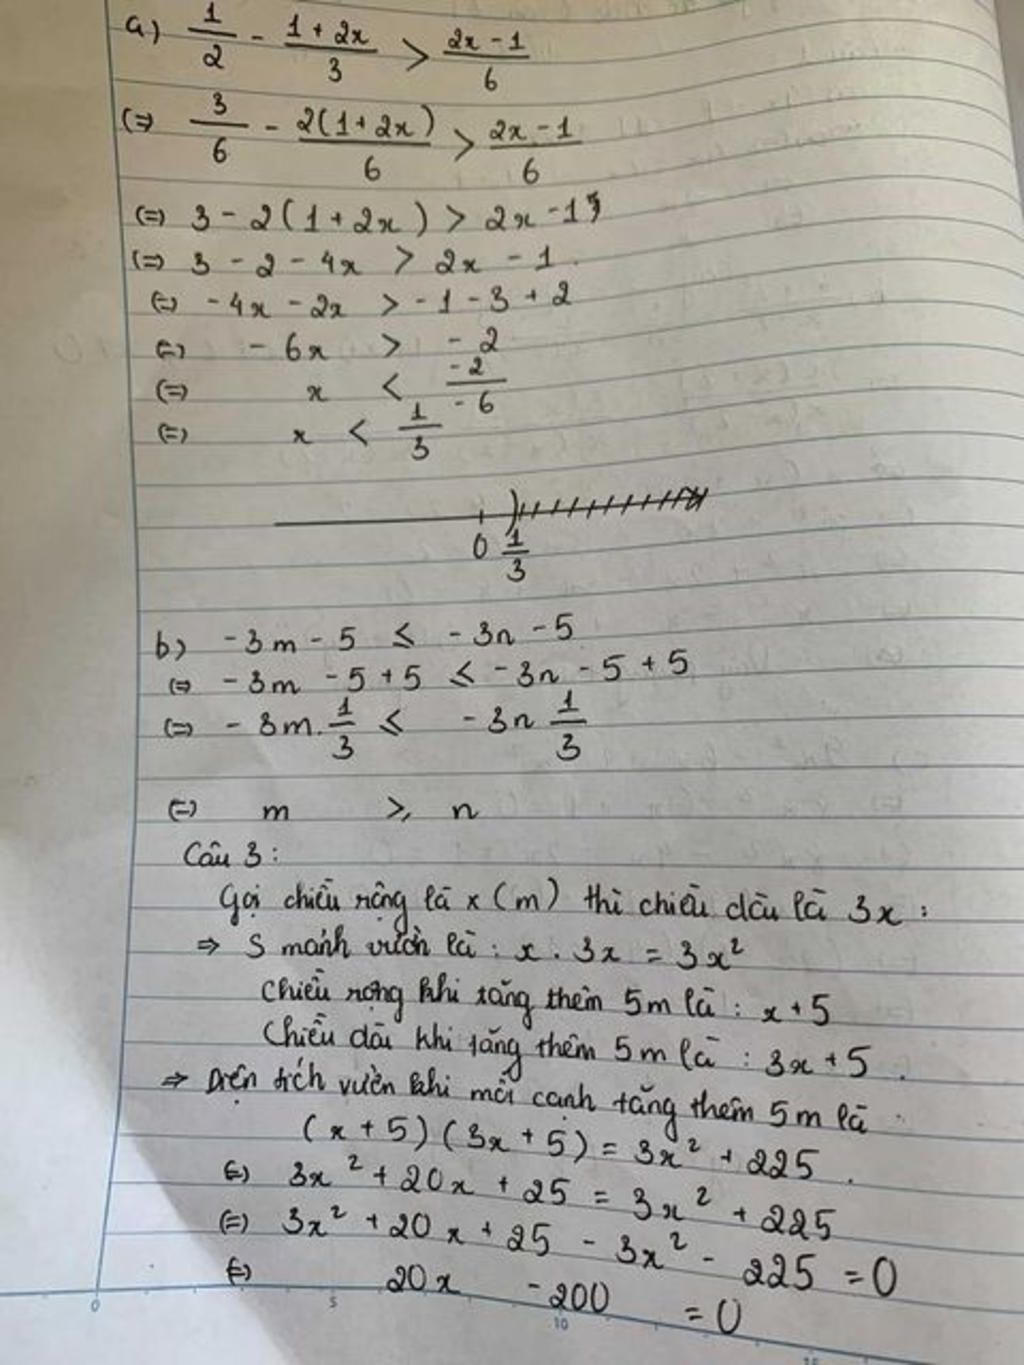 a) 1/2 - (1 + 2x)/3 > (2x - 1)/6
(=) 3/6 - 2(1 + 2x)/6 > (2x - 1)/6
(=) 3 - 2(1 + 2x) > 2x - 1
(=) 3 - 2 - 4x > 2x - 1
(=) - 4x - 2x > - 1 - 3 + 2
(=) - 6x > - 2
(=) x < -2/-6
(=) x < 1/3
0 1/3
b) - 3m - 5 ≤ - 3n - 5
(=) - 3m - 5 + 5 ≤ - 3n - 5 + 5
(=) - 3m . 1/3 ≤ - 3n 1/3
(=) m ≥ n
Câu 3 :
Gọi chiều rộng là x (m) thì chiều dài là 3x :
⇒ S mảnh vườn là : x . 3x = 3x²
Chiều rộng khi tăng thêm 5m là : x + 5
Chiều dài khi tăng thêm 5m là : 3x + 5 .
⇒ Diện tích vườn khi mỗi cạnh tăng thêm 5m là
(x + 5) (3x + 5) = 3x² + 225 .
(=) 3x² + 20x + 25 = 3x² + 225
(=) 3x² + 20x + 25 - 3x² - 225 = 0
(=) 20x - 200 = 0
0 5 10